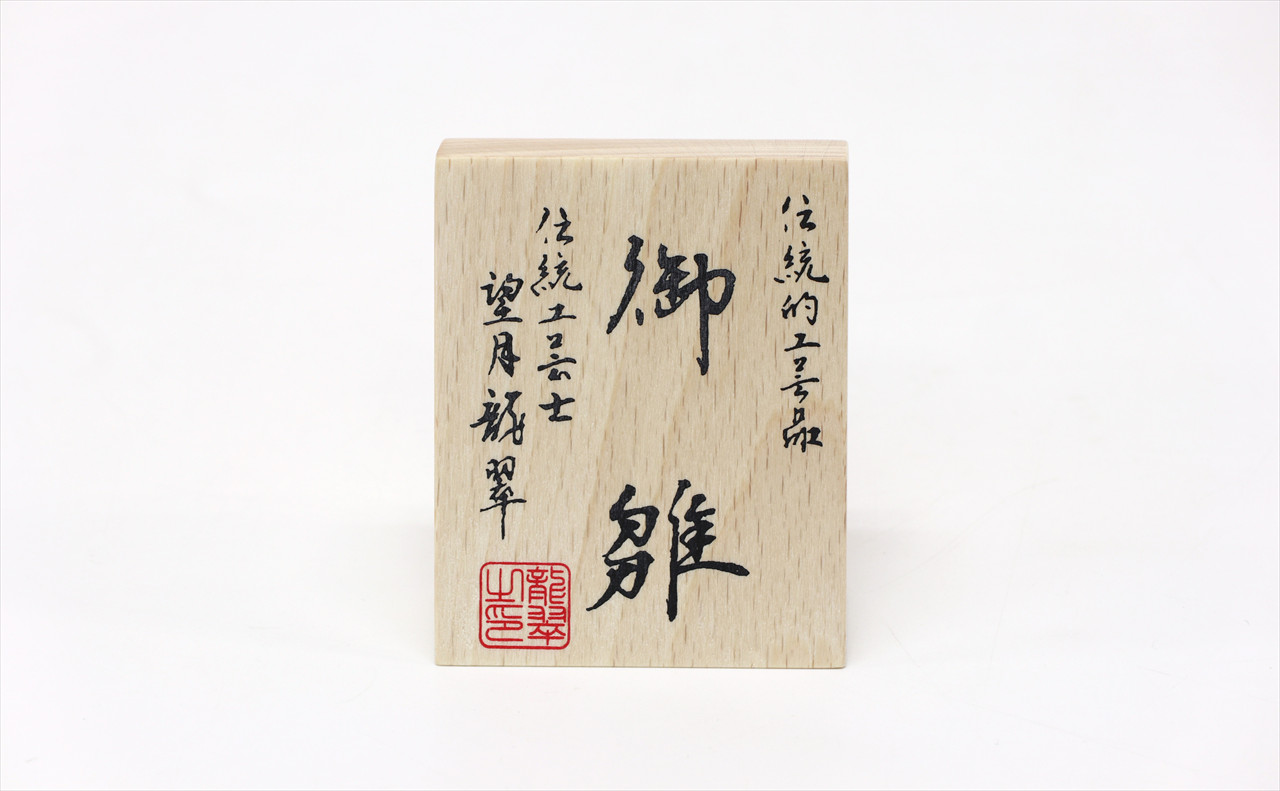 伝統的工芸品
御雛
伝統工芸士
望月龍翠
龍翠
之印